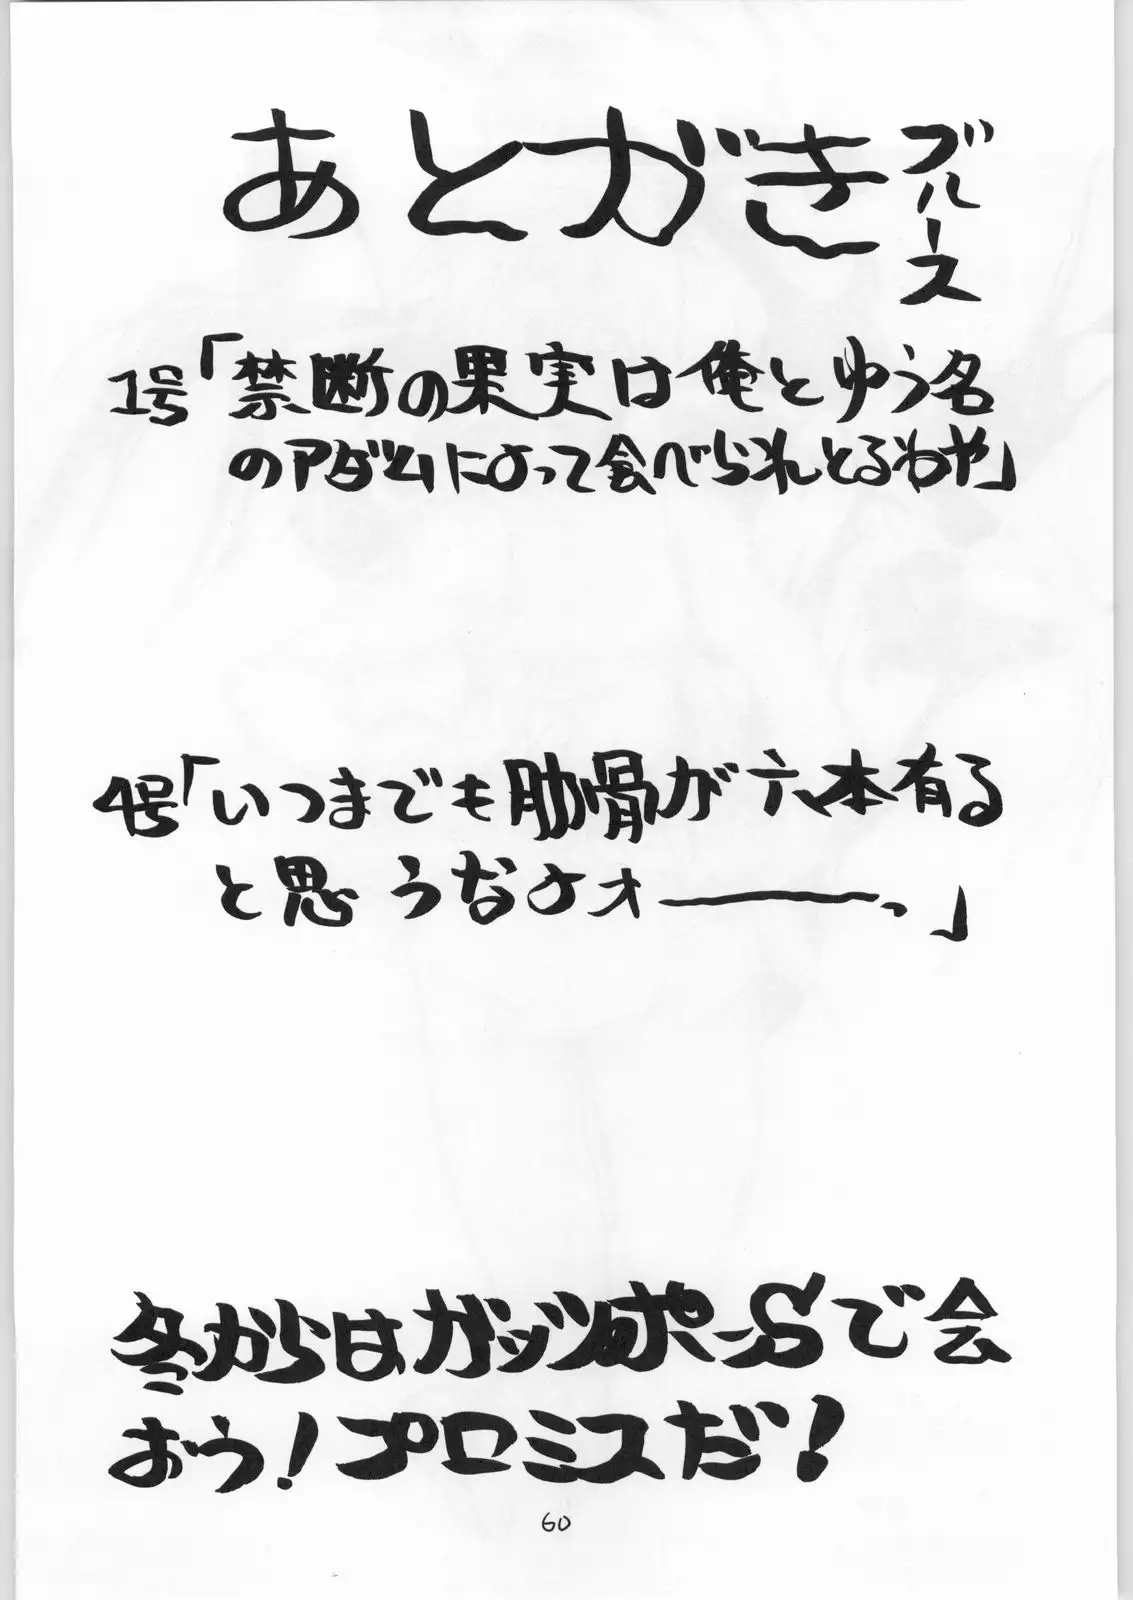 あとがきブルース
1号「禁断の果実は俺とゆう名
のアダムによって会べられとるわや」
4号「いつまでも肋骨が六本有る
と思うなよォーーっ」
冬からはガッツポーSで会
おう!プロミスだ!
60